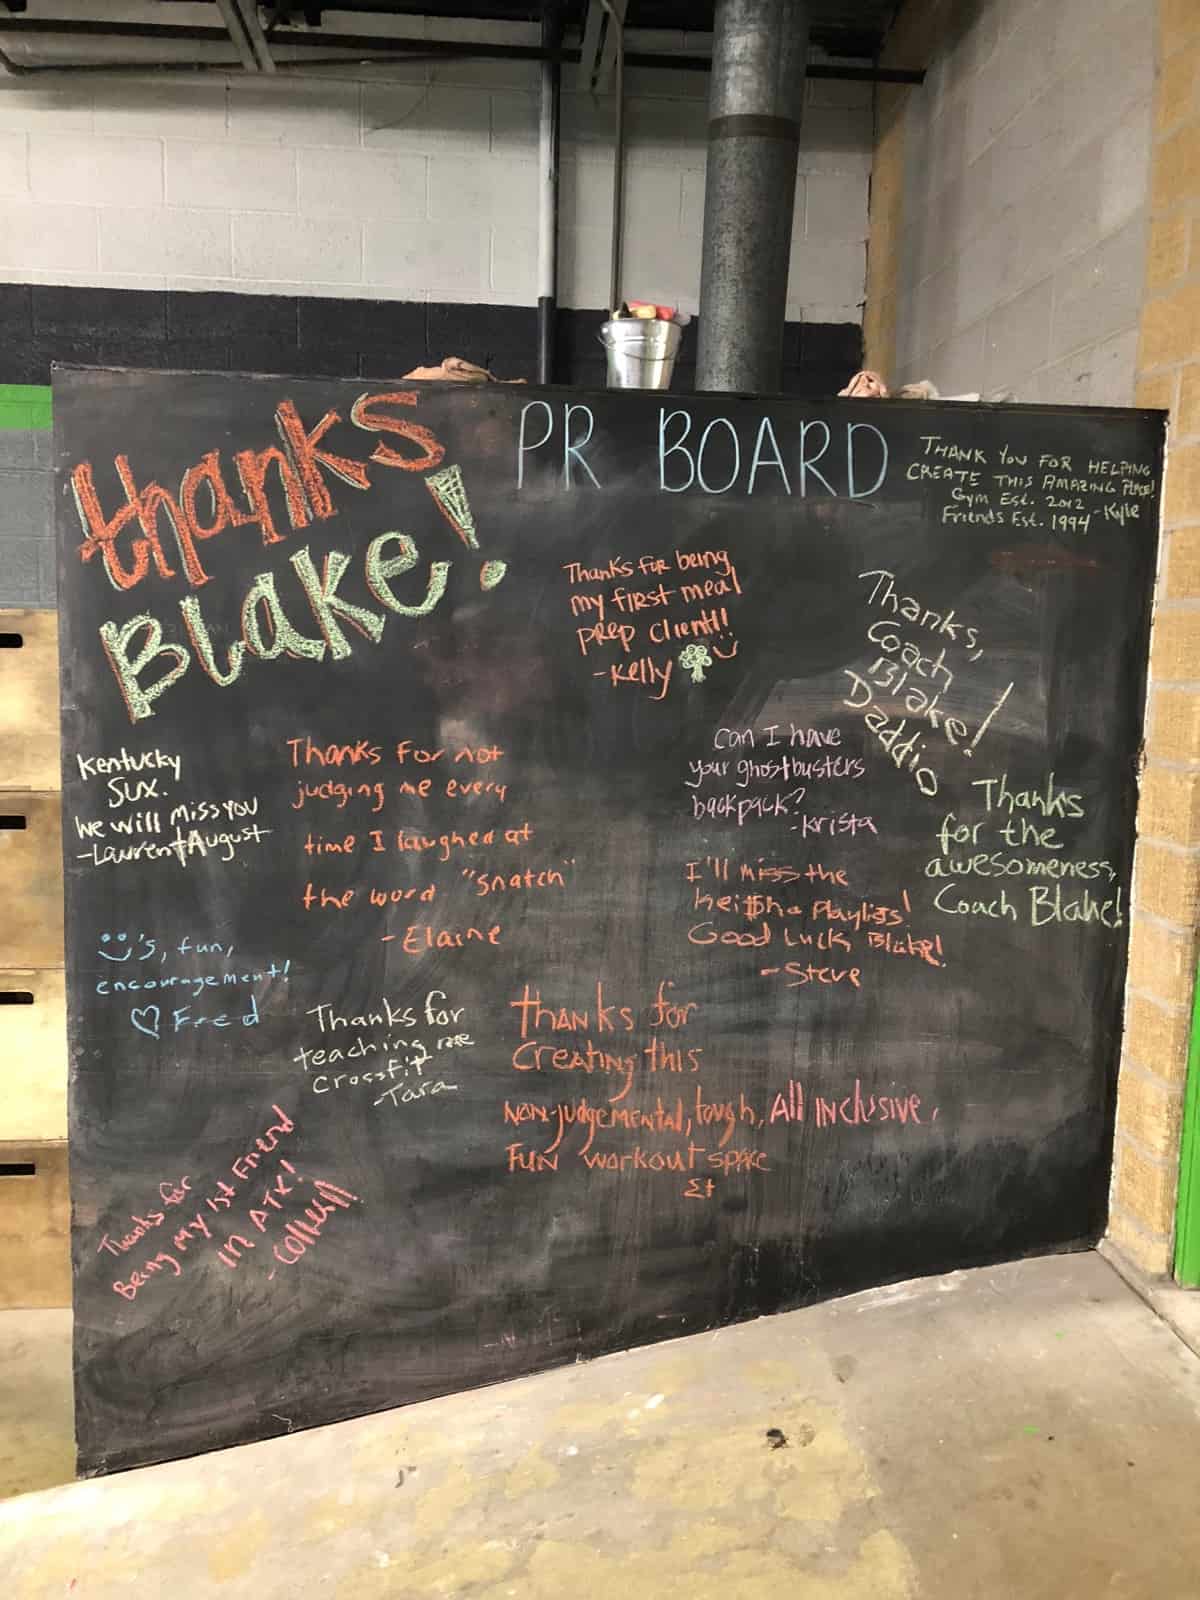 thanks
Blake!
PR BOARD
THANK YOU FOR HELPING
CREATE THIS AMAZING PLACE!
Gym Est. 2012 -Kyle
Friends Est. 1994
Thanks for being
my first meal
prep client!!
-Kelly
Thanks,
Coach
Blake!
Daddio
Kentucky
Sux.
We will miss you
-Lauren+August
Thanks for not
judging me every
time I laughed at
the word "snatch"
-Elaine
Can I have
your ghostbusters
backpack?
-Krista
Thanks
for the
awesomeness,
Coach Blake!
I'll miss the
Kei$ha Playlists!
Good Luck Blake!
-Steve
's, fun,
encouragement!
♡ Fred
Thanks for
teaching me
Crossfit
-Tara
thanks for
Creating this
Non-judgemental, tough, All Inclusive,
Fun workout space
Thanks for
Being My 1st Friend
in ATX!